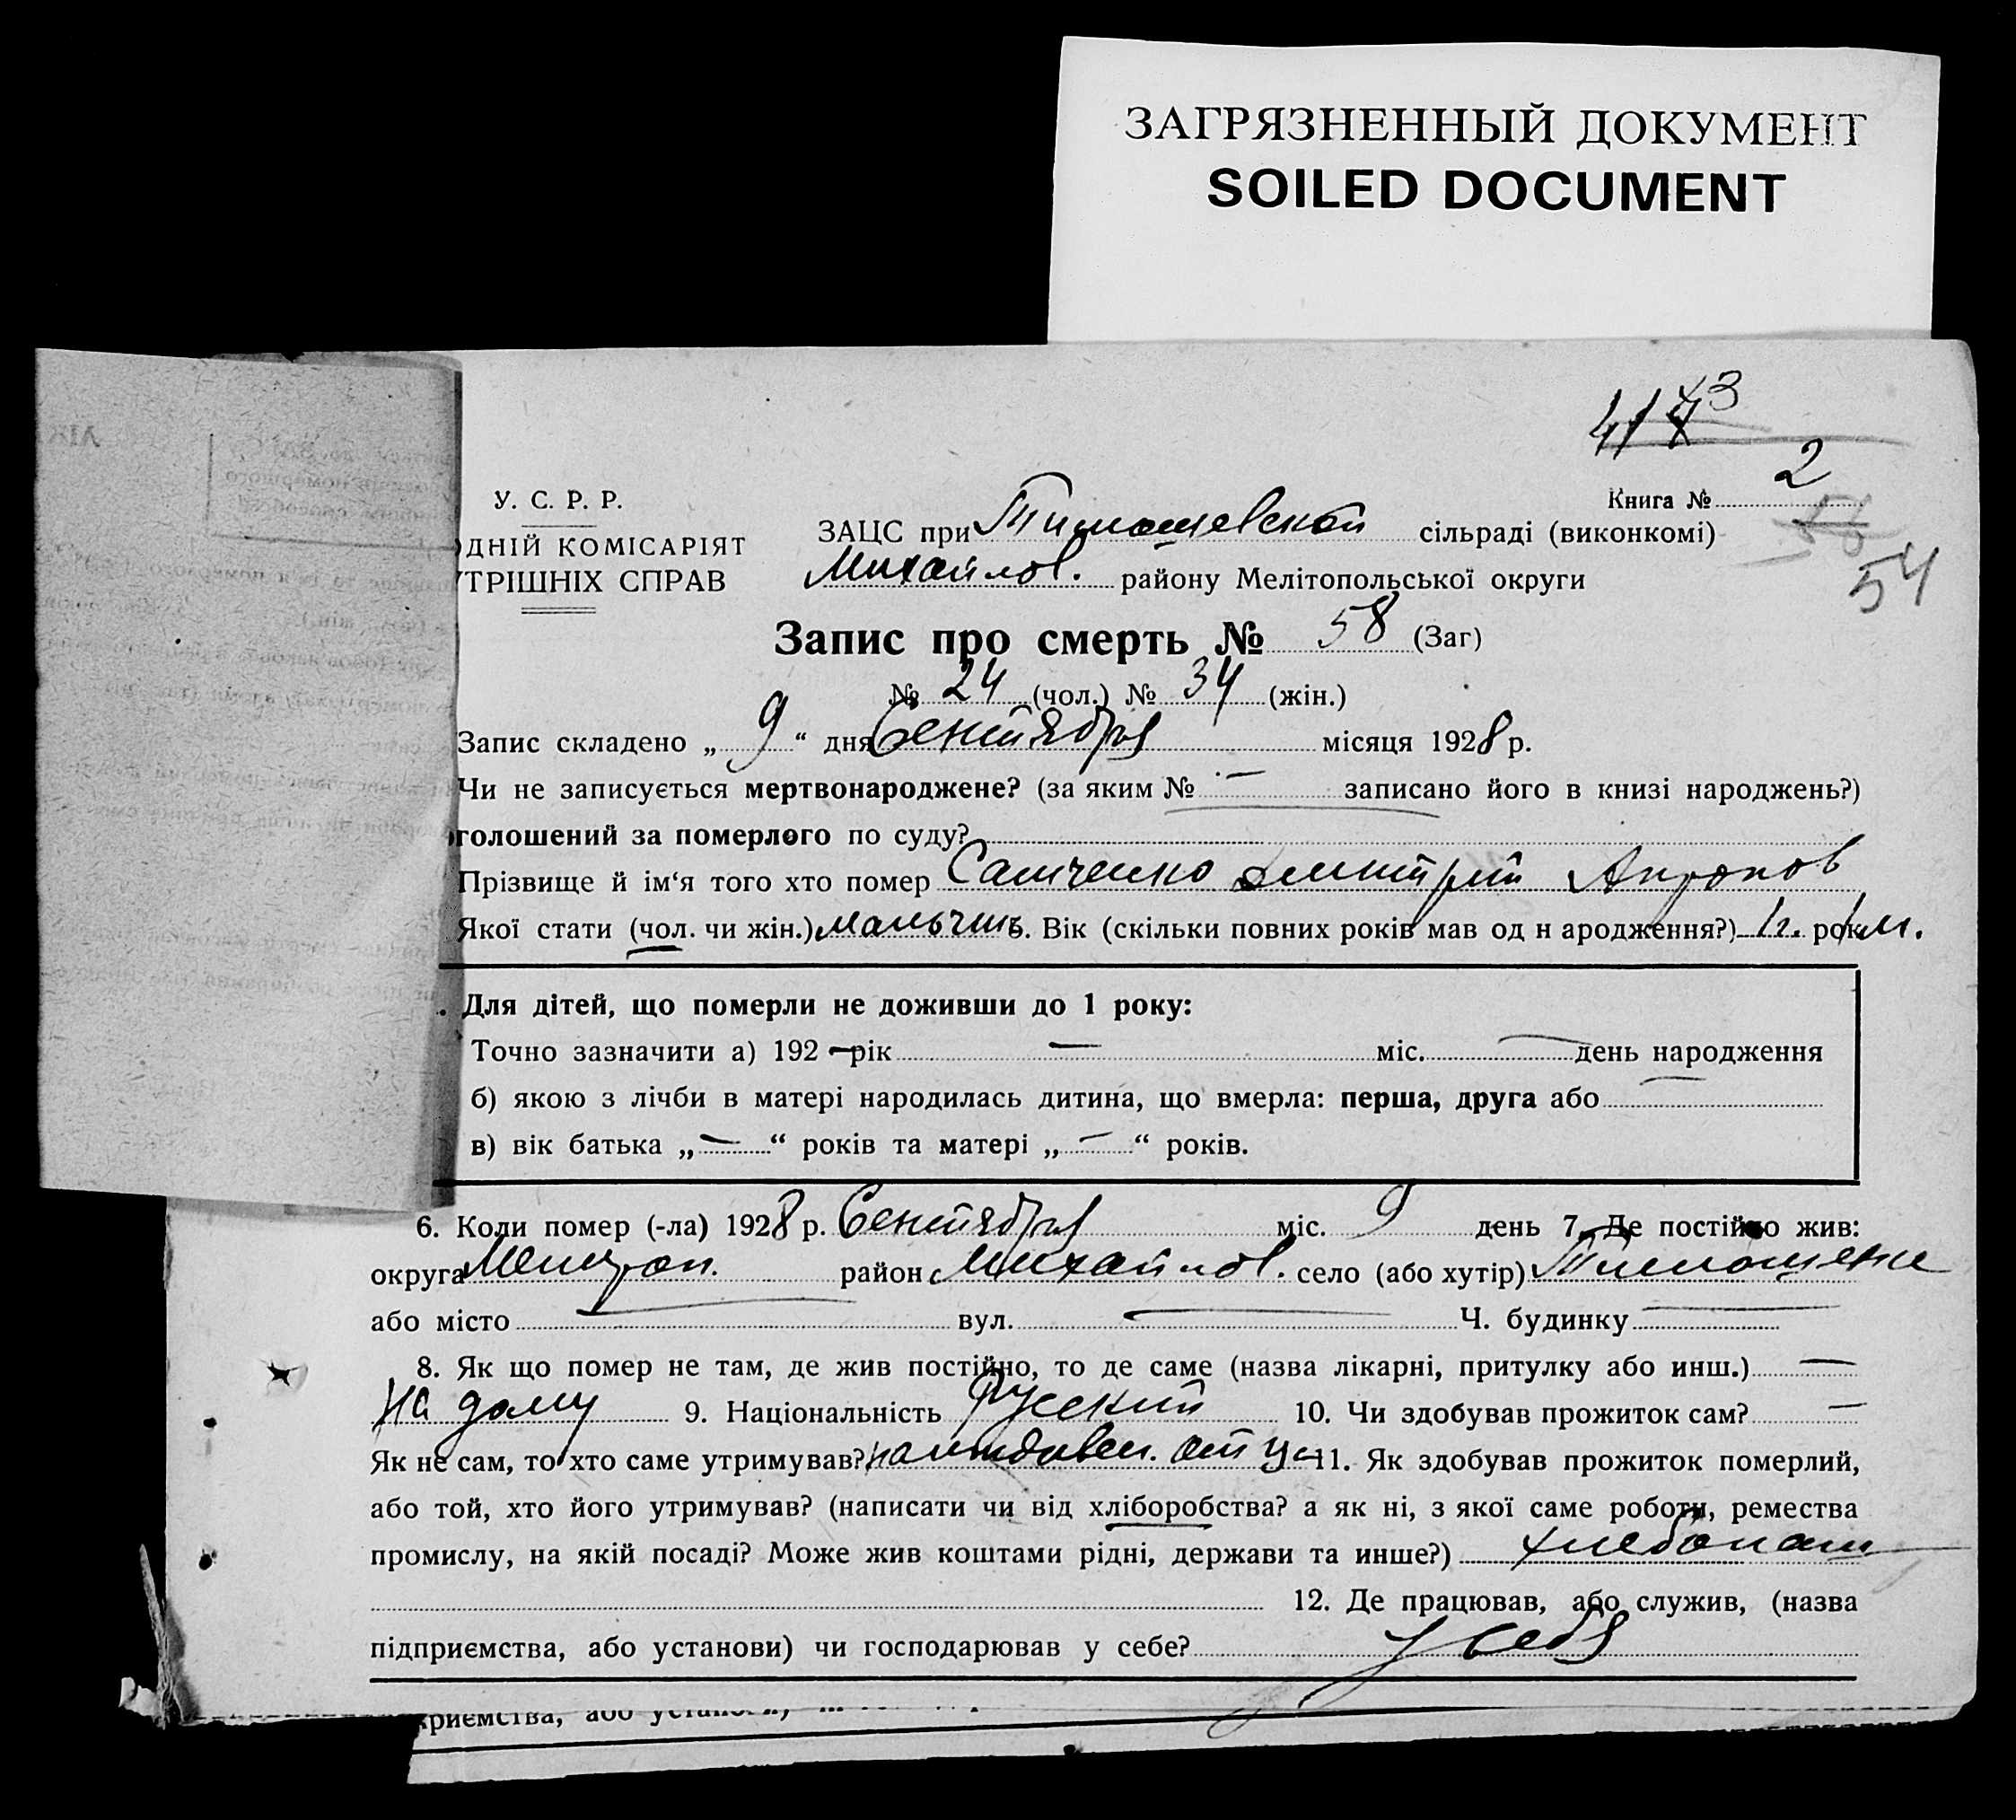 ЗАГРЯЗНЕННЫЙ ДОКУМЕНТ
SOILED DOCUMENT
Книга № 2
54
У. С. Р. Р.
ОДНІЙ КОМІСАРІЯТ
ТРІШНІХ СПРАВ
ЗАЦС при Тимошевской сільраді (виконкомі)
Михайлов. району Мелітопольської округи
Запис про смерть № 58 (Заг)
№ 24 (чол.) № 34 (жін.)
Запис складено „ 9 “ дня Сентября місяця 1928 р.
Чи не записується мертвонароджене? (за яким № — записано його в книзі народжень?)
голошений за померлого по суду?
Прізвище й ім'я того хто помер Самченко Дмитрий
Якої стати (чол. чи жін.) мальчик 5. Вік (скільки повних років мав од н ародження?) 1 г. рок м.
Для дітей, що померли не доживши до 1 року:
Точно зазначити а) 192 — рік — міс. — день народження
б) якою з лічби в матері народилась дитина, що вмерла: перша, друга або —
в) вік батька „ — “ років та матері „ — “ років.
6. Коли помер (-ла) 1928 р. Сентября міс. 9 день 7. Де постійно жив:
округа Мелитоп. район Михайлов. село (або хутір) Тимошевк
або місто — вул. — Ч. будинку —
8. Як що помер не там, де жив постійно, то де саме (назва лікарні, притулку або инш.) —
на дому 9. Національність Русский 10. Чи здобував прожиток сам? —
Як не сам, то хто саме утримував? на иждивен. отца 11. Як здобував прожиток померлий,
або той, хто його утримував? (написати чи від хліборобства? а як ні, з якої саме роботи, ремества
промислу, на якій посаді? Може жив коштами рідні, держави та инше?) хлебопаш
12. Де працював, або служив, (назва
підприємства, або установи) чи господарював у себе? у себя